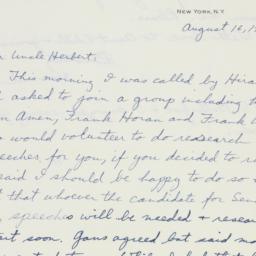 NEW YORK, N.Y.
August 16, 19
Uncle Herbert,
This morning I was called by Hira
asked to join a group including th
Amen, Frank Horan and Frank W
would volunteer to do research
speeches for you, if you decided to r
said I should be happy to do so
that whoever the candidate for Sen
, speeches will be needed + resear
start soon. Gans agreed but said ma